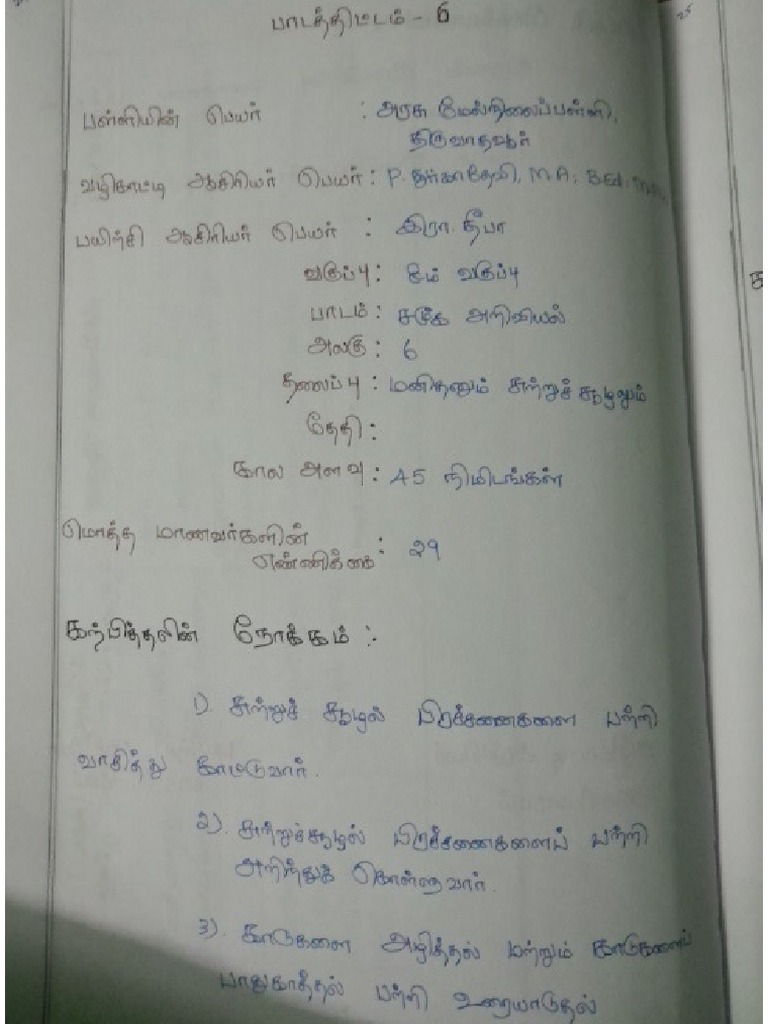 பாடத்திட்டம் - 6
25
பள்ளியின் பெயர் : அரசு மேல்நிலைப்பள்ளி,
திருவாதவூர்
வழிகாட்டி ஆசிரியர் பெயர் : P. துர்காதேவி, M.A; B.Ed;
பயிற்சி ஆசிரியர் பெயர் : இரா. தீபா
வகுப்பு : 8ம் வகுப்பு
பாடம் : சமூக அறிவியல்
அலகு : 6
தலைப்பு : மனிதனும் சுற்றுச்சூழலும்
தேதி :
கால அளவு : 45 நிமிடங்கள்
மொத்த மாணவர்களின்
எண்ணிக்கை : 29
கற்பித்தலின் நோக்கம் :
1). சுற்றுச் சூழல் பிரச்சனைகளை பற்றி
வாசித்து காட்டுவார்.
2). சுற்றுச்சூழல் பிரச்சனைகளைப் பற்றி
அறிந்துக் கொள்ளுவார்.
3). காடுகளை அழித்தல் மற்றும் காடுகளைப்
பாதுகாத்தல் பற்றி உரையாடுதல்